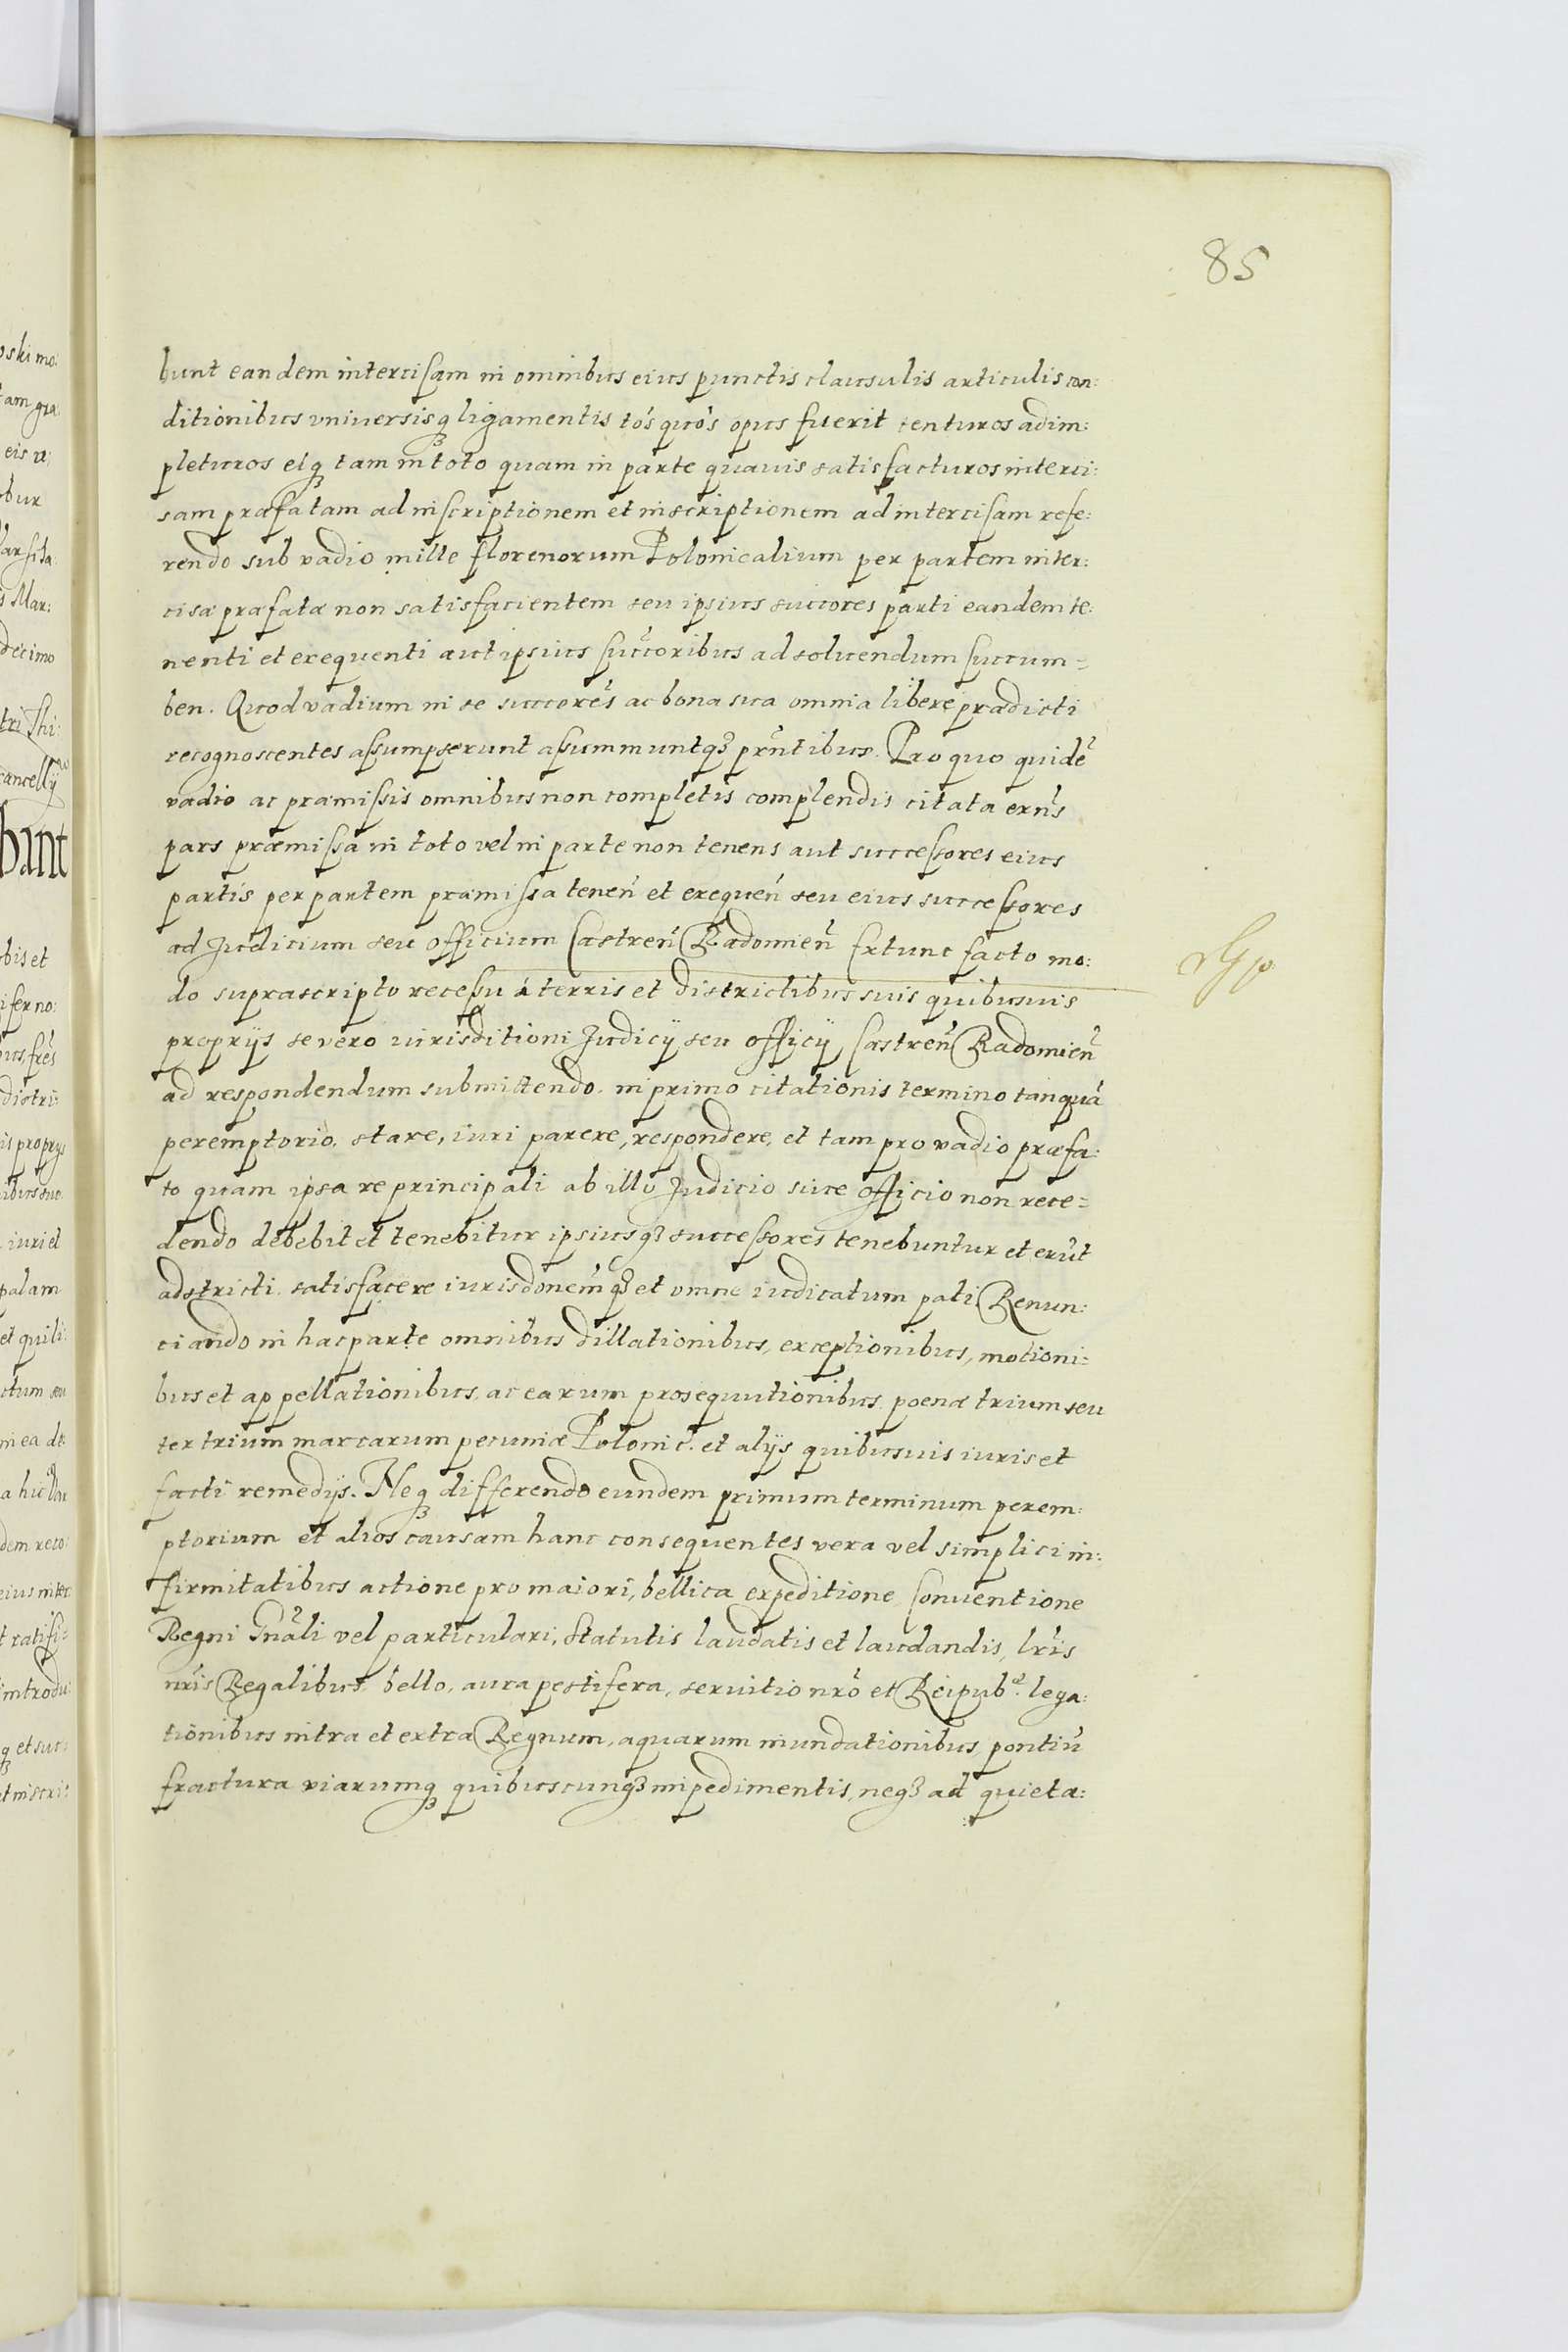 85
bunt eandem intercisam in omnibus eius punctis clausulis articulis con:
ditionibus vniuersisq₃ ligamentis tós quós opus fuerit tenturos adim:
pleturos eiq₃ tam in toto quam in parte quauis satisfacturos interci:
sam præfatam ad inscriptionem et inscriptionem ad intercisam refe:
rendo sub vadio mille florenorum Polonicalium per partem inter:
cisæ præfatæ non satisfacientem seu ipsius succores parti eandem te:
nenti et exequenti aut ipsius succoribus ad soluendum succum=
ben. Quod vadium in se succorēs ac bona sua omnia libere prædicti
recognoscentes assumpserunt assummuntq₃ prn̄tibus. Pro quo quidē
vadio ac præmissis omnibus non completis complendis citata exn̄s
pars præmissa in toto vel in parte non tenens aut successores eius
partis per partem præmissa teneń et exequeń seu eius successores
ad Judicium seu officium Castreń Radomień Extunc facto mo:
do suprascripto recessu á terris et districtibus suis quibusuis
proprijs se vero iurisditioni Judicij seu officij Castreń Radomień
ad respondendum submittendo. in primo citationis termino tanquā
peremptorio. stare, iuri parere, respondere, et tam pro vadio præfa:
to quam ipsa re principali ab illo Judicio siue officio non rece=
dendo debebit et tenebitur ipsiusq₃ successores tenebuntur et erūt
adstricti satisfacere iurisdonēmq₃ et omne iudicatum pati Renun:
ciando in hac parte omnibus dillationibus, exceptionibus, motioni=
bus et appellationibus ac earum prosequutionibus pœnæ trium seu
ter trium marcarum pecuniæ Polonic̄. et alijs quibusuis iuris et
facti remedijs. Neq₃ differendo eundem primum terminum perem:
ptorium et alios causam hanc consequentes vera vel simplici in:
firmitatibus actione pro maiori, bellica expeditione Conuentione
Regni Gnāli vel particulari, Statutis laudatis et laudandis, lrīs
nrīs Regalibus bello, aura pestifera, seruitio nrō et Reipub.ᵉ lega:
tionibus intra et extra Regnum, aquarum inundationibus, pontiū
fractura viarumq₃ quibuscunq₃ impedimentis, neq₃ ad quieta: